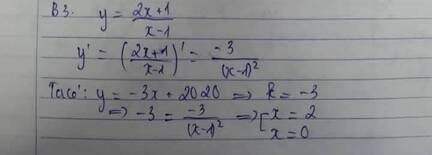 B3. y = \frac{2x+1}{x-1}
y' = (\frac{2x+1}{x-1})' = \frac{-3}{(x-1)^2}
Ta có: y = -3x + 2020 => k = -3
=> -3 = \frac{-3}{(x-1)^2} => [x = 2
x = 0